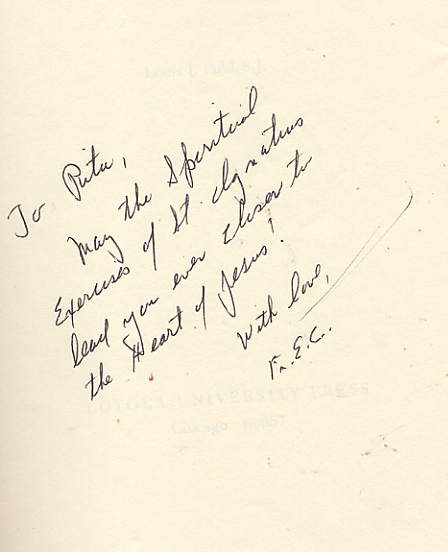 To Rita,
May the Spiritual
Exercises of St. Ignatius
lead you ever closer to
the Heart of Jesus!
With love,
Fr. E.C.
LOYOLA UNIVERSITY PRESS
Chicago 60657